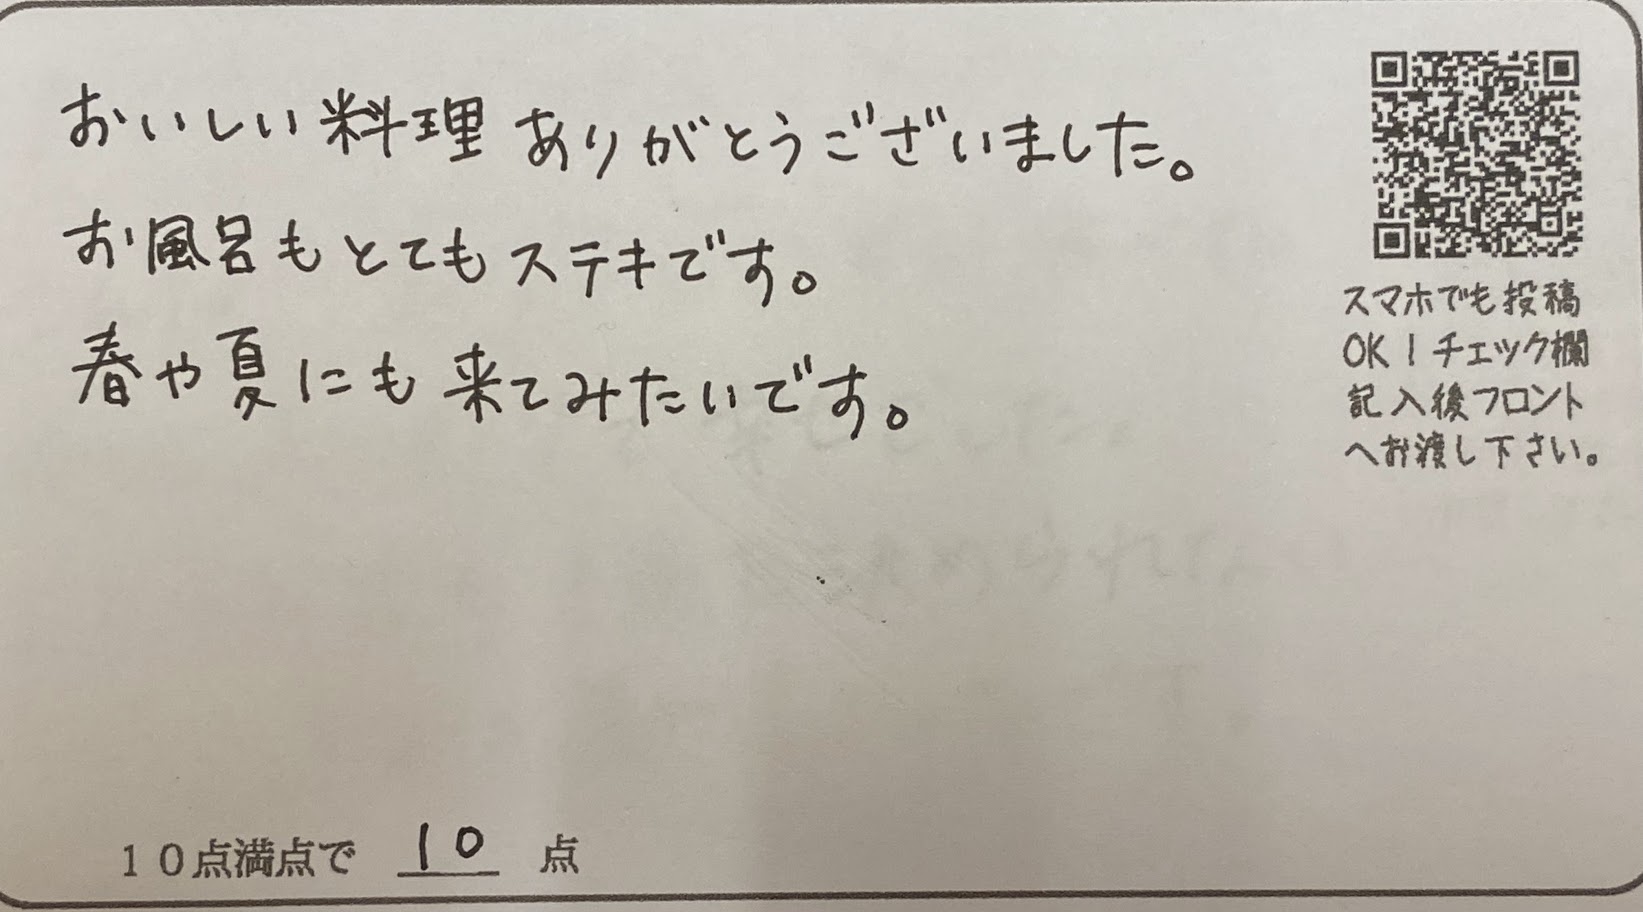 おいしい料理 ありがとうございました。
お風呂もとてもステキです。
春や夏にも 来てみたいです。
スマホでも投稿
OK！チェック欄
記入後フロント
へお渡し下さい。
１０点満点で 10 点